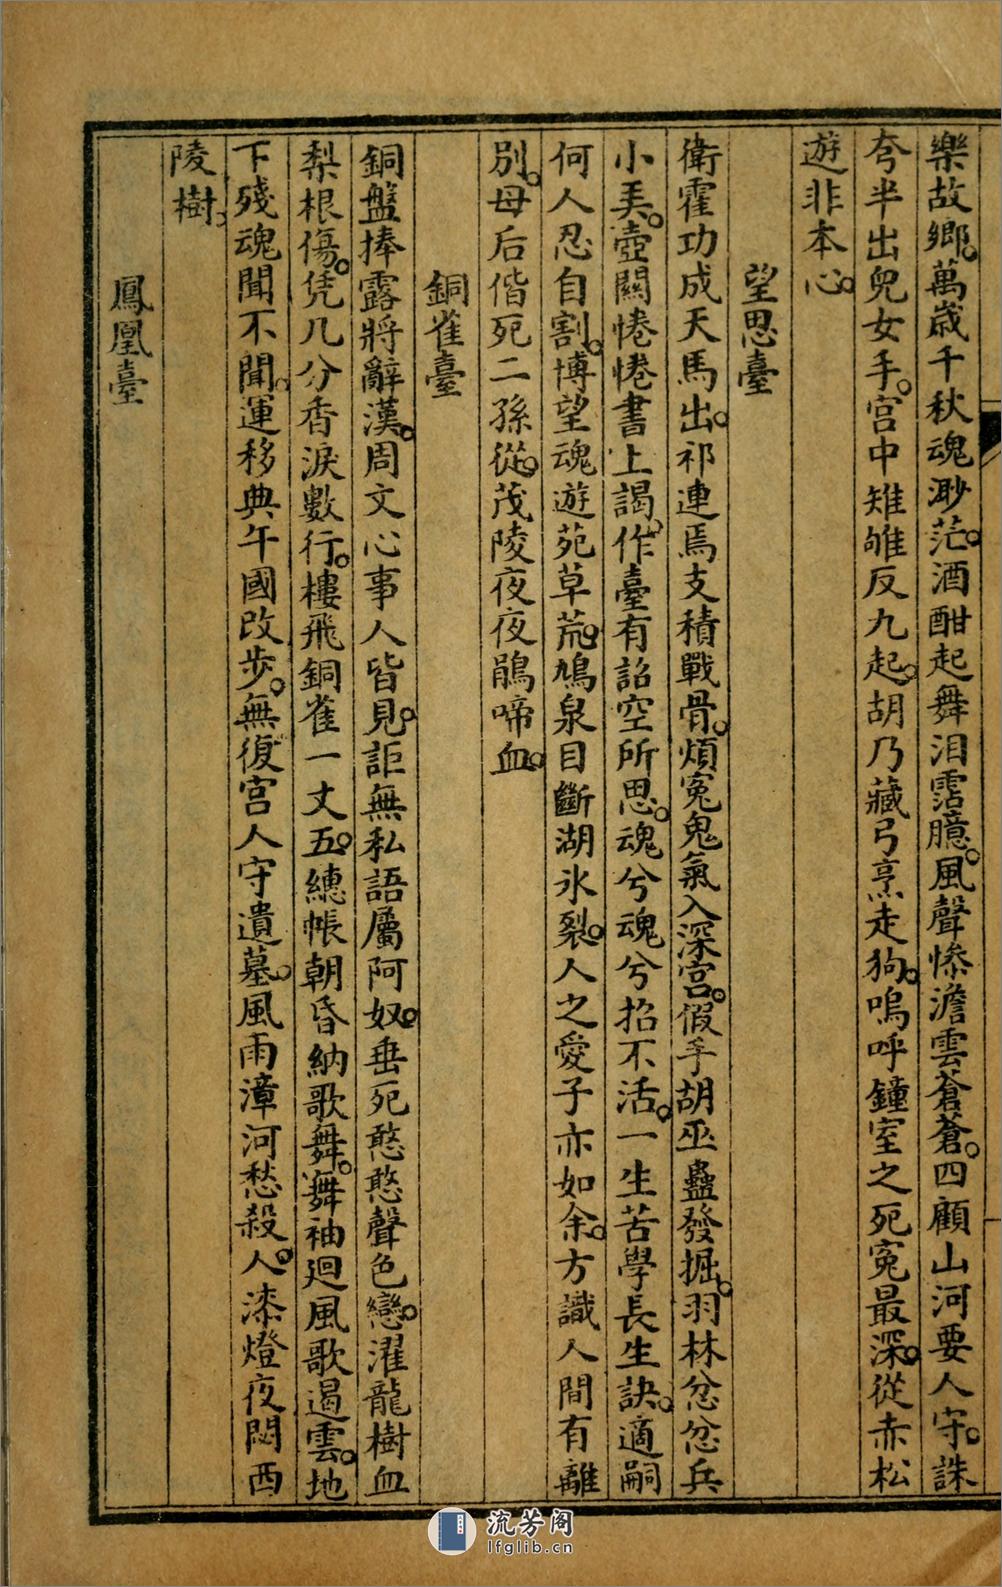 樂故鄉。萬歲千秋魂渺茫。酒酣起舞泪霑臆。風聲慘澹雲蒼蒼。四顧山河要人守。誅
夸半出兒女手。宮中雉雊反九起。胡乃藏弓烹走狗。嗚呼鐘室之死寃最深。從赤松
遊非本心。
望思臺
衛霍功成天馬出。祁連焉支積戰骨。煩寃鬼氣入深宮。假手胡巫蠱發掘。羽林忿忿兵
小弄。壺關惓惓書上謁。作臺有詔空所思。魂兮魂兮招不活。一生苦學長生訣。適嗣
何人忍自割。博望魂遊苑草荒。鳩泉目斷湖氷裂。人之愛子亦如余。方識人間有離
別。母后偕死二孫從。茂陵夜夜鵑啼血。
銅雀臺
銅盤捧露將辭漢。周文心事人皆見。詎無私語屬阿奴。垂死憨憨聲色戀。濯龍樹血
梨根傷。凭几分香淚數行。樓飛銅雀一丈五。繐帳朝昏納歌舞。舞袖迴風歌遏雲。地
下殘魂聞不聞。運移典午國改步。無復宮人守遺墓。風雨漳河愁殺人。漆燈夜閟西
陵樹。
鳳凰臺
流芳阁
lfglib.cn